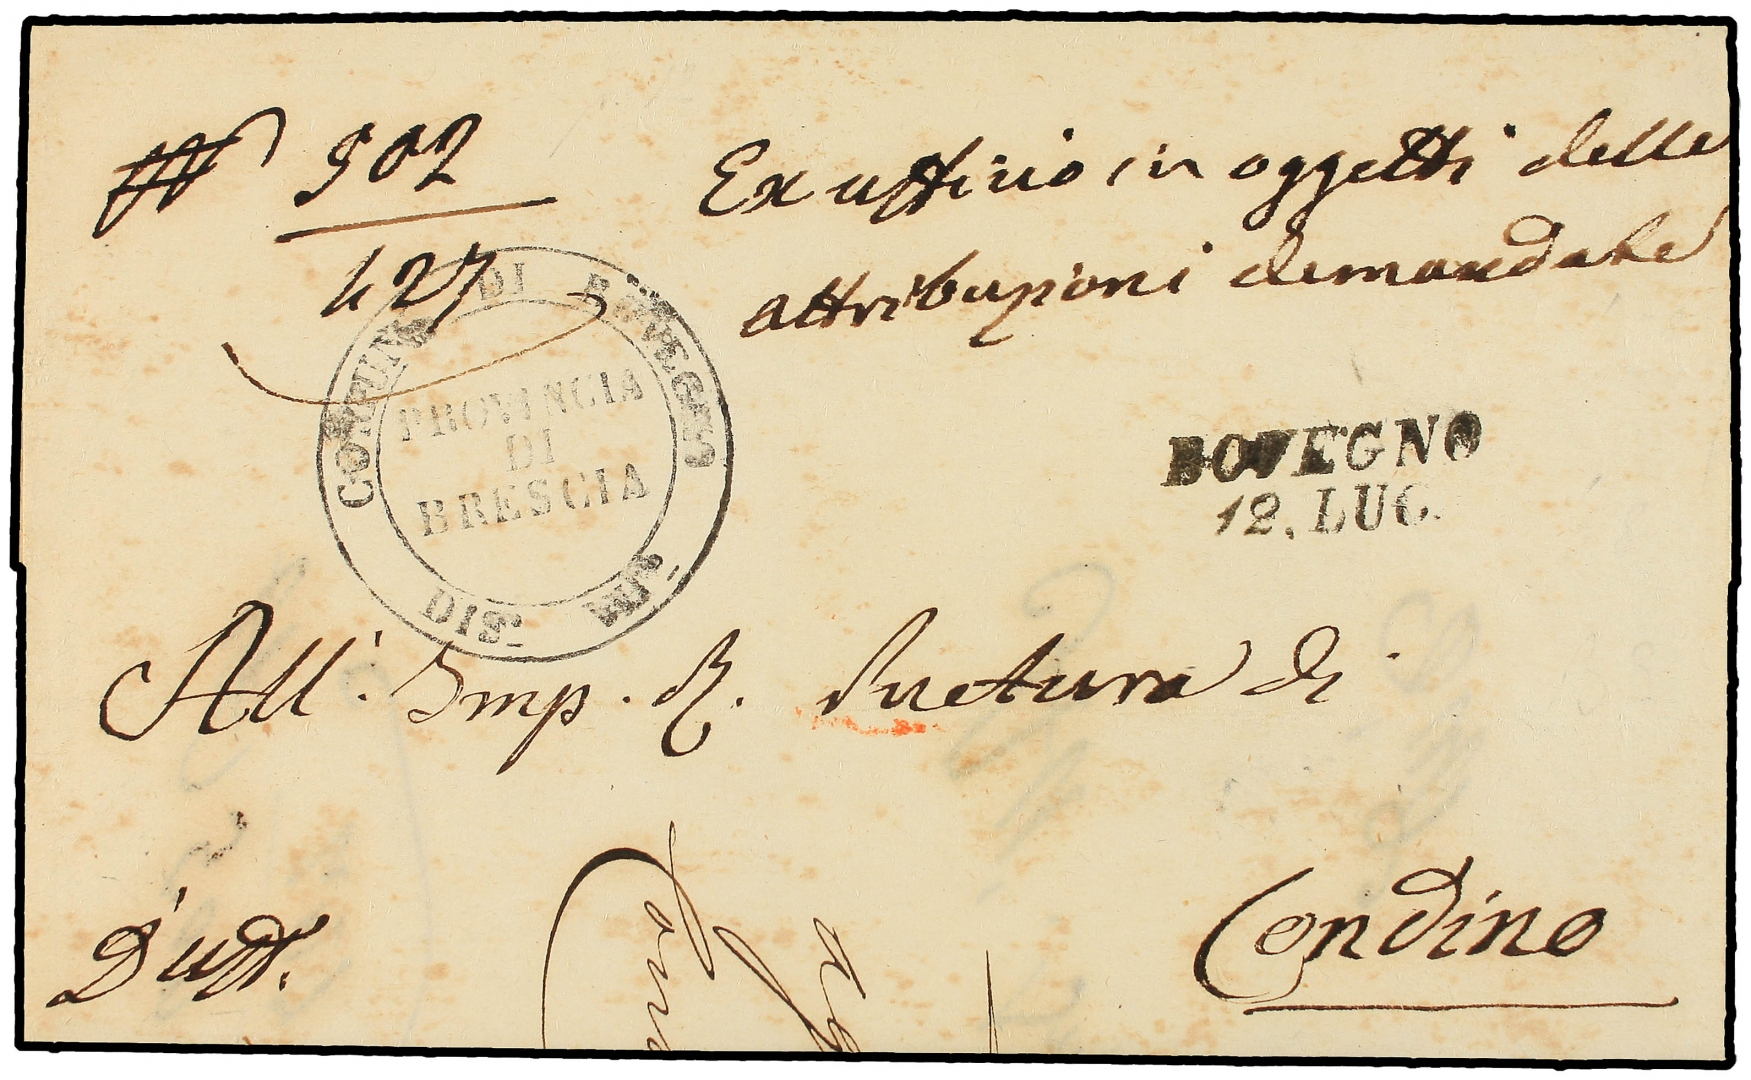 N° 502
427
Ex uffizio in oggetti delle
attribuzioni demandate
COMUNE DI BOVEGNO
PROVINCIA
DI
BRESCIA
DIS.
BOVEGNO
12. LUG.
All'. Imp. R. Pretura di
Condino
D'uff.